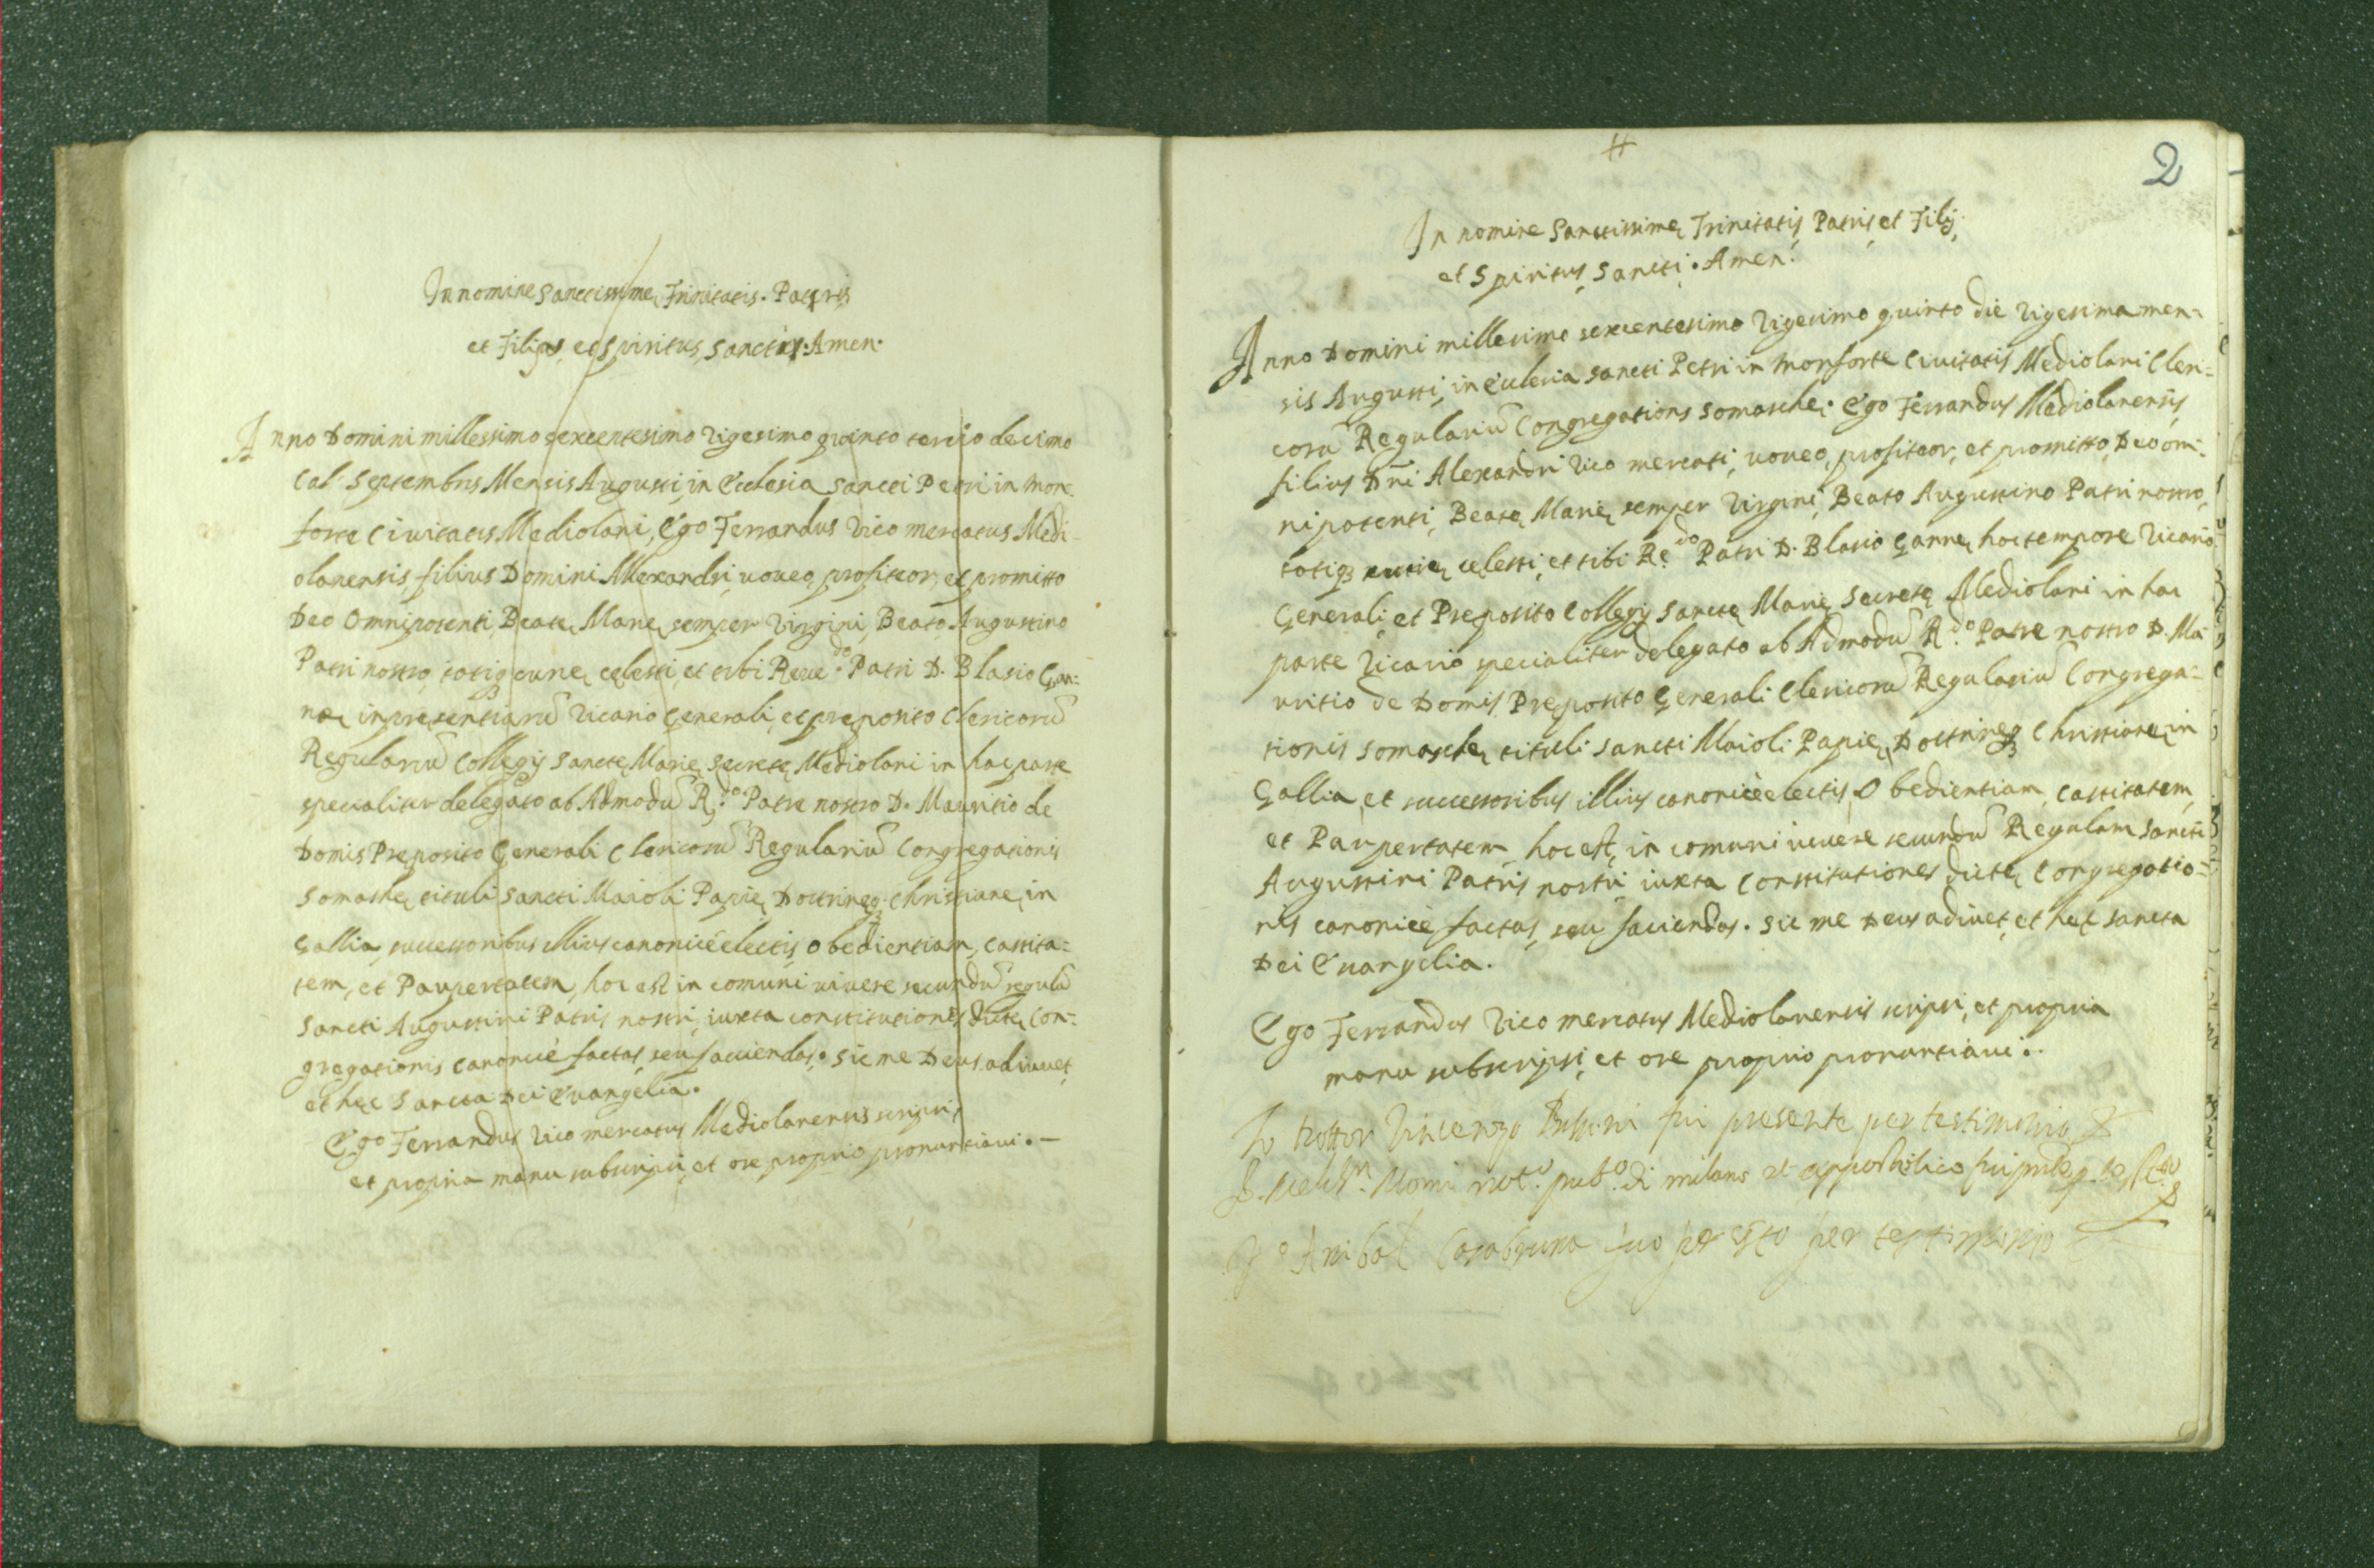 In nomine Sanctissimę Trinitatis. Patris
et Filij, et Spiritus Sancti. Amen.
Anno Domini millessimo sexcentesimo vigesimo quinto tertio decimo
Cal. Septembris Mensis Augusti, in Ecclesia Sancti Petri in Mon¬
forte Civitatis Mediolani, Ego Ferrandus Vico mercatus Medi-
olanensis, filius Domini Alexandri, voveo, profiteor, et promitto
Deo Omnipotenti, Beatę Marię semper Virgini, Beato Augustino
Patri nostro, totiq; curię cęlesti, et tibi Reve.do Patri D. Blasio Gan¬
nę inpręsentiarũ Vicario Generali, et pręposito Clericorũ
Regulariũ Collegij Sanctę Marię Secretę Mediolani in hac parte
specialiter delegato ab Admodũ R.do Patre nostro D. Mauritio de
Domis Preposito Generali Clericorũ Regulariũ Congregationis
Somaschę tituli Sancti Maioli Papię, Doctrinęq; Christianę, in
Gallia, successoribus illius canonicè electis, obedientiam, castita¬
tem, et Paupertatem, hoc est in comuni vivere secundũ regulã
Sancti Augustini Patris nostri, iuxta constitutiones dictę Con¬
gregationis canonicè factas, seu faciendas. Sic me Deus adiuvet,
et hęc Sancta Dei Evangelia.
Ego Ferrandus Vico mercatus Mediolanensis scripsi,
et propria manu subscripsi, et ore proprio pronuntiavi. —
2
In nomine Sanctissimę Trinitatis, Patris, et Filij,
et Spiritus Sancti. Amen.
Anno Domini millesimo sexcentesimo vigesimo quinto die vigesima men¬
sis Augusti, in Ecclesia Sancti Petri in Monforte Civitatis Mediolani Cleri¬
corũ Regulariũ Congregationis Somaschę. Ego Ferrandus Mediolanensis,
filius Dñi Alexandri Vico mercati, voveo, profiteor, et promitto, Deo om¬
nipotenti, Beatę Marię semper Virgini, Beato Augustino Patri nostro,
totiq; curię cęlesti, et tibi R.do Patri D. Blasio Gannę, hoc tempore Vicario
Generali, et Preposito Collegij Sanctę Marię Secretę Mediolani in hac
parte Vicario specialiter delegato ab Admodũ R.do Patre nostro D. Ma¬
uritio de Domis Preposito Generali Clericorũ Regulariũ Congrega¬
tionis Somaschę tituli Sancti Maioli Papię, Doctrinęq; Christianę, in
Gallia, et successoribus illius canonicè electis, Obedientiam, castitatem,
et Paupertatem, hoc est, in comuni vivere secundũ Regulam Sancti
Augustini Patris nostri, iuxta Constitutiones dictę Congregatio¬
nis canonicè factas, seu faciendas. Sic me Deus adiuvet, et hęc Sancta
Dei Evangelia.
Ego Ferrandus Vico mercatus Mediolanensis scripsi, et propria
manu subscripsi, et ore proprio pronuntiavi.
Io Vincenzo fui presente per testimonio
not.o pub.o di milano et appostolico fui
Anibal Casabruna per testimonio